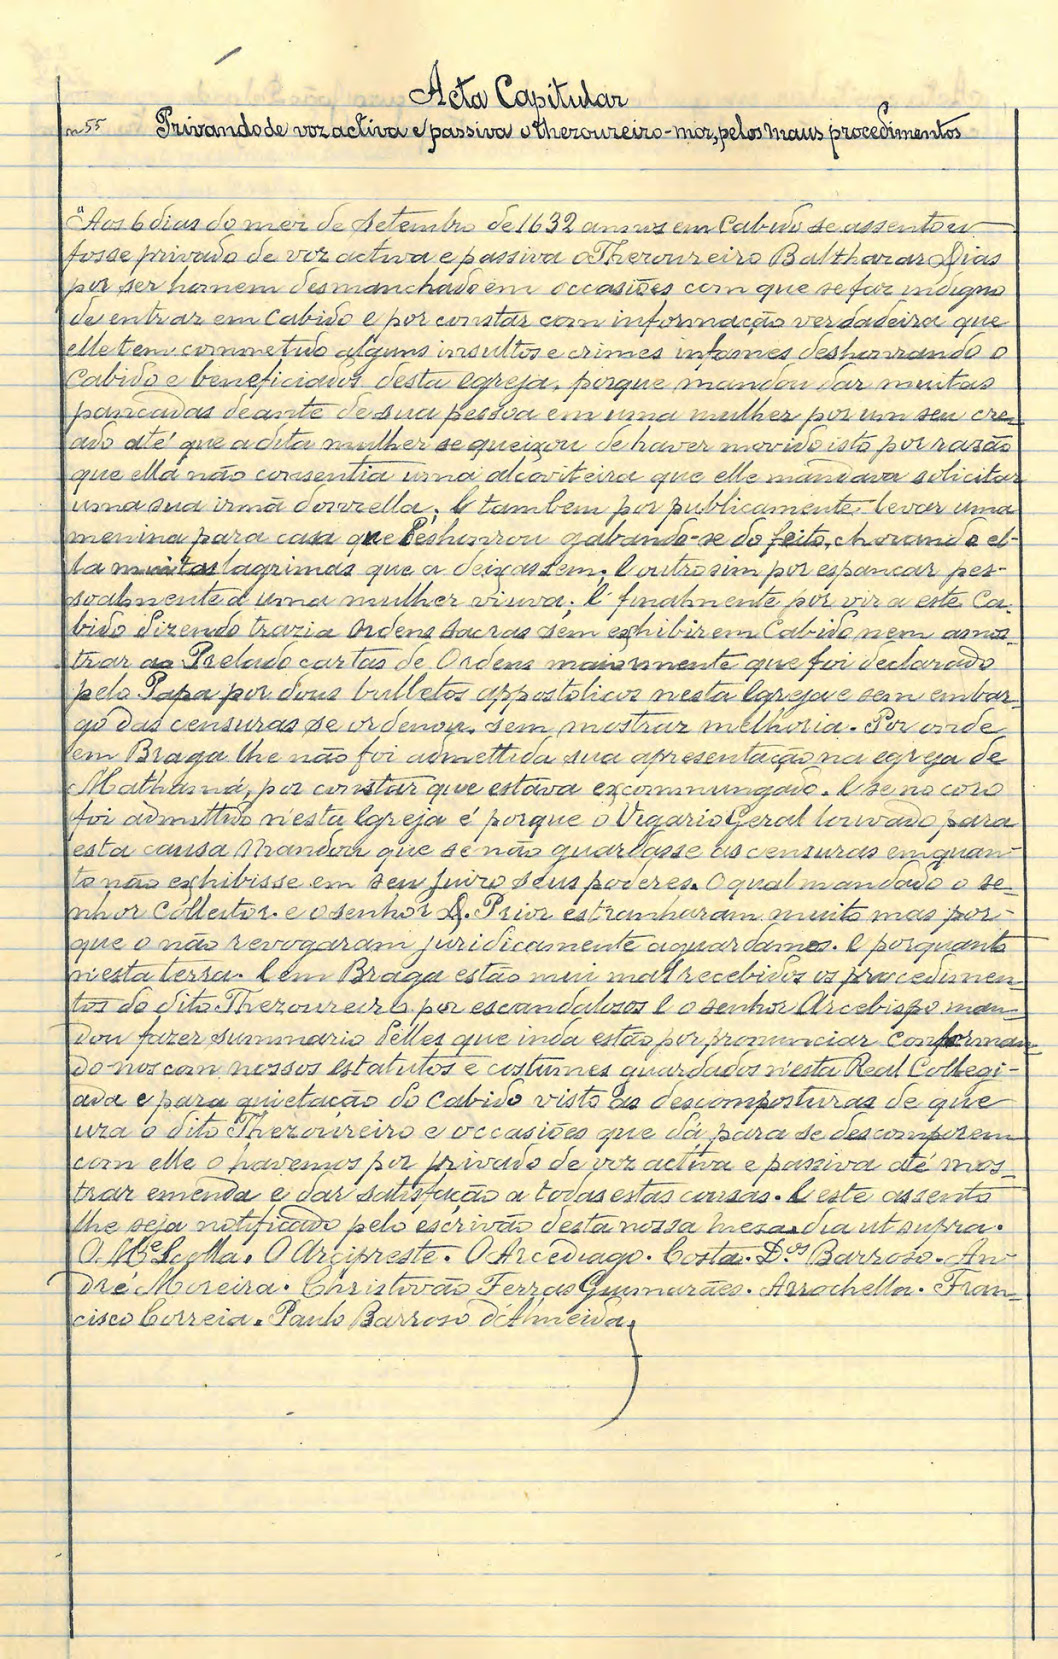 Acta Capitular
nº 55 Privando de voz activa e passiva o thezoureiro-mor, pelos maus procedimentos
"Aos 6 dias do mez de Setembro de 1632 annos em Cabido se assentou
fosse privado de voz activa e passiva o Thezoureiro Balthazar Dias
por ser homem desmanchado em occasiões com que se faz indigno
de entrar em Cabido e por constar com informação verdadeira que
elle tem commetido alguns insultos e crimes infames deshonrando o
Cabido e beneficiados desta Egreja, porque mandou dar muitas
pancadas deante de sua pessoa em uma mulher por um seu cre-
ado até que a dita mulher se queixou de haver movido isto por razão
que ella não consentia uma alcoviteira que elle mandava solicitar
uma sua irmã donzella; E tambem por publicamente levar uma
menina para casa que deshonrou gabando-se do feito, chorando el-
la muitas lagrimas que a deixassem; E outrosim por espancar pes-
soalmente a uma mulher viuva; E finalmente por vir a este Ca-
bido dizendo trazia Ordens Sacras sem exhibir em Cabido nem amos-
trar ao Prelado cartas de Ordens maiormente que foi declarado
pelo Papa por dous bulletos appostolicos nesta Egreja e sem embar-
go das censuras se ordenou, sem mostrar melhoria. Por onde
em Braga lhe não foi admettida sua apresentação na egreja de
Mathamá, por constar que estava excommungado. E se no coro
foi admettido n'esta Egreja é porque o Vigario Geral louvado para
esta causa Mandou que se não guardasse as censuras emquan-
to não exhibisse em seu Juizo seus poderes. O qual mandado o se-
nhor Colleitor. e o senhor D. Prior estranharam muito mas por-
que o não revogaram juridicamente aguardamos. E porquanto
n'esta terra. E em Braga estão mui mal recebidos os procedimen-
tos do dito Thezoureiro por escandalosos E o senhor Arcebispo man-
dou fazer summario delles que inda estão por pronunciar Conforman-
do-nos com nossos Estatutos e costumes guardados n'esta Real Collegi-
ada e para quietação do Cabido visto as descomposturas de que
uza o dito Thezoureiro e occasiões que dá para se descomporem
com elle o havemos por privado de voz activa e passiva até mos-
trar emenda e dar satisfação a todas estas cousas. E este assento
lhe seja notificado pelo escrivão desta nossa Meza. dia ut supra.
O Me Scolla. O Arcipreste. O Arcediago. Costa. Dos Barroso. An-
dré Moreira. Christovão Ferras Guimarães. Arrochella. Fran-
cisco Correia. Paulo Barroso d'Almeida.